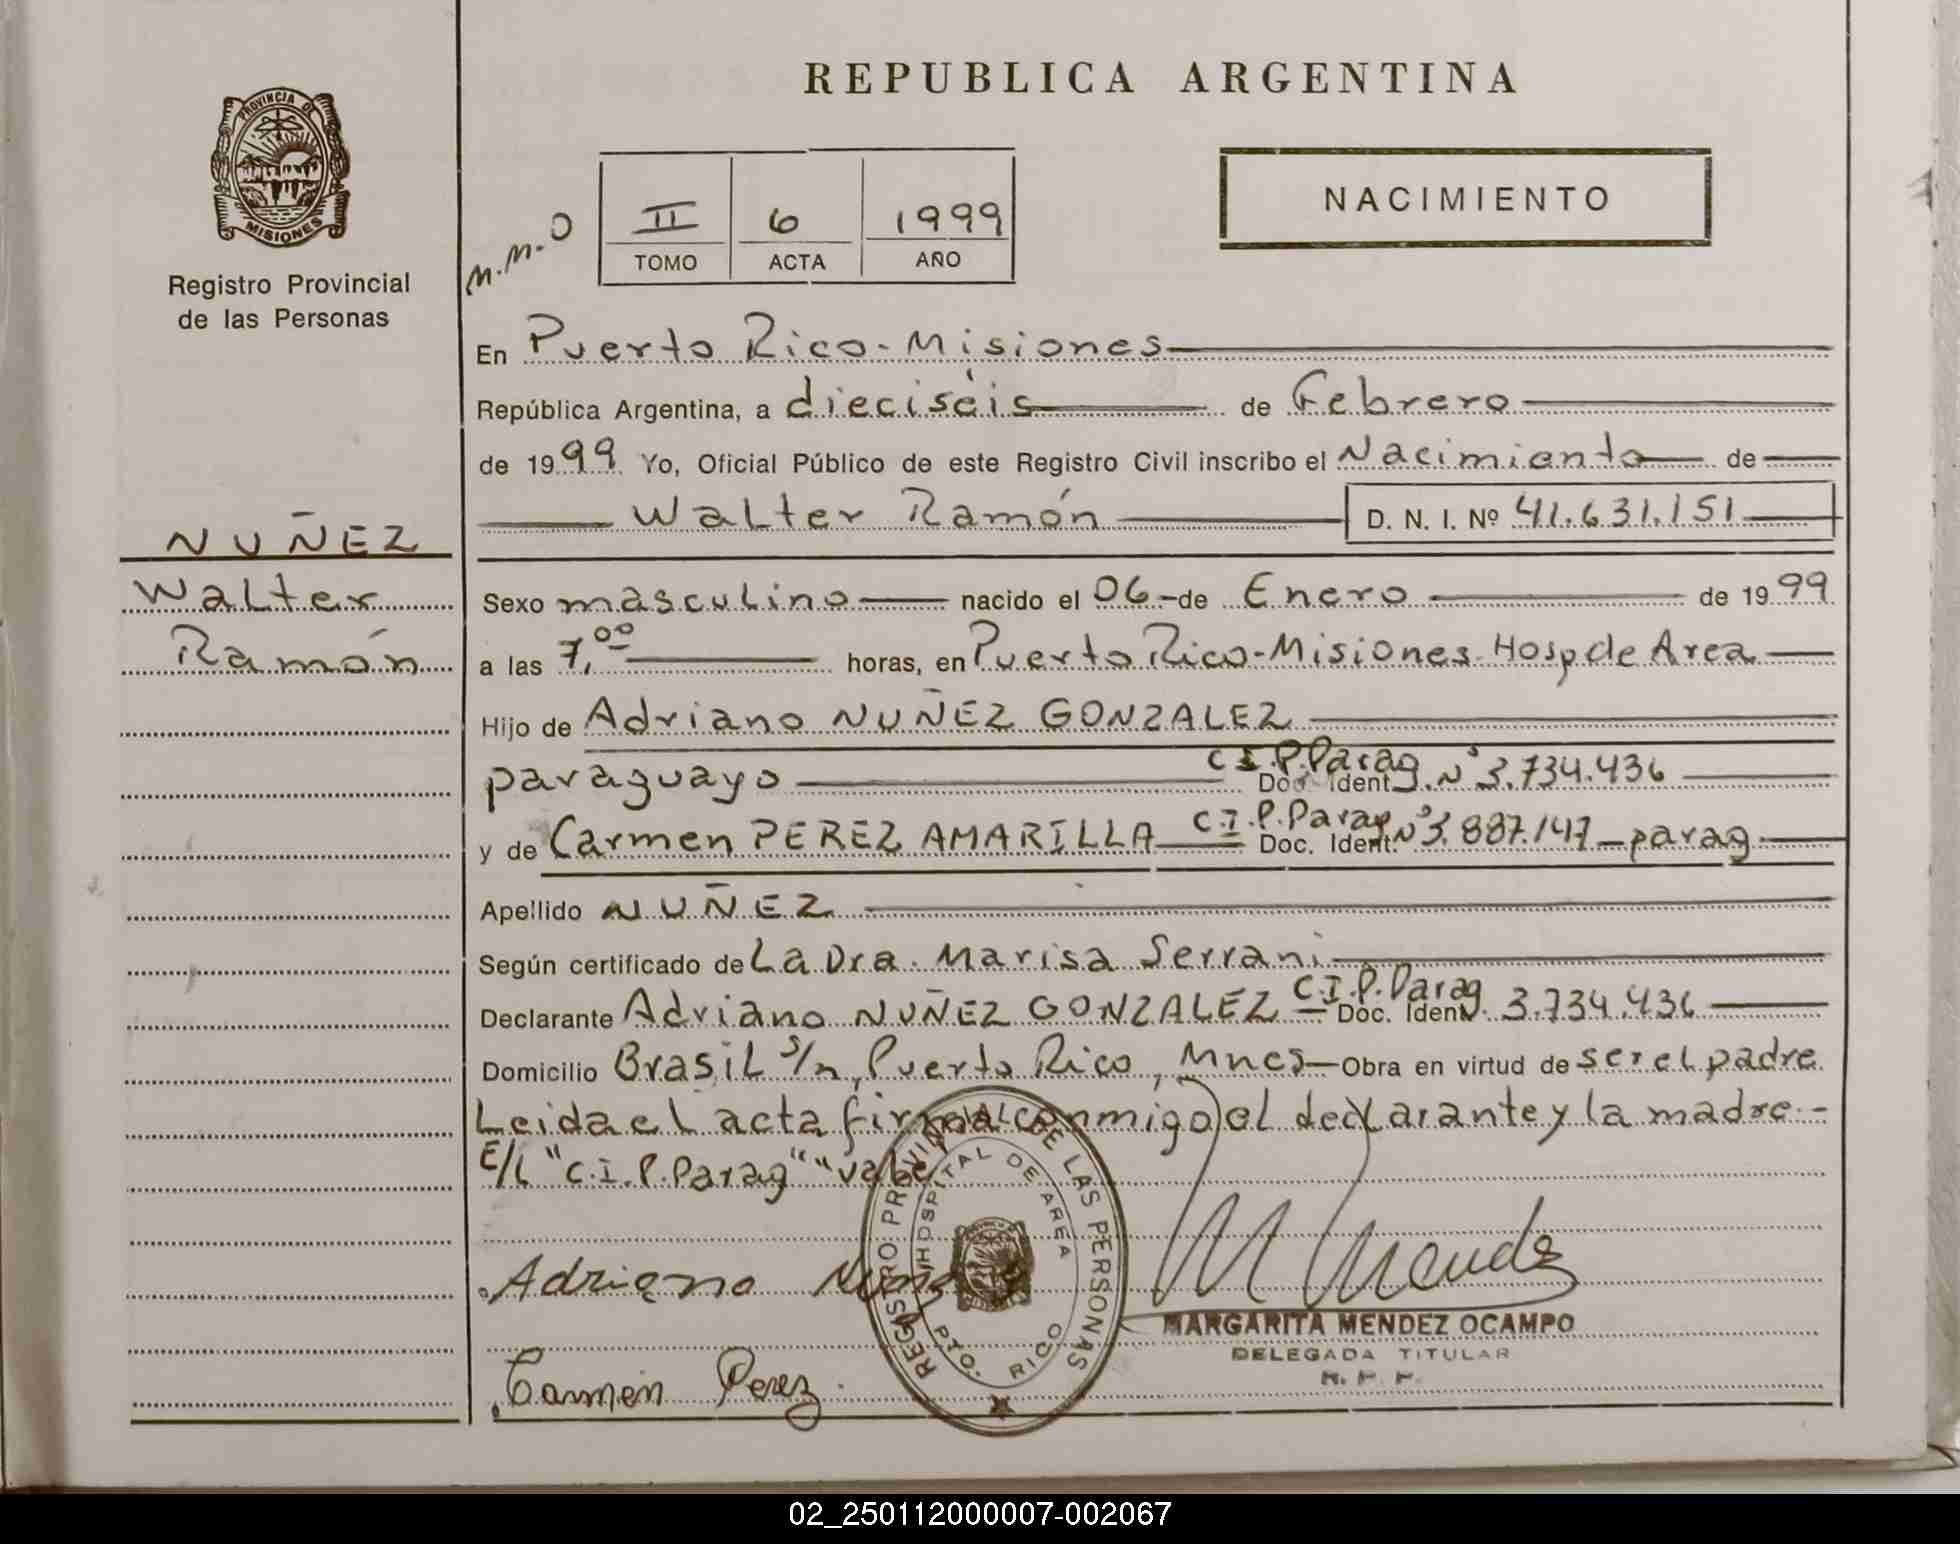 REPUBLICA ARGENTINA
PROVINCIA DE
MISIONES
Registro Provincial
de las Personas
M.M.O
II 6 1999
TOMO ACTA AÑO
NACIMIENTO
En Puerto Rico - Misiones
República Argentina, a dieciséis de Febrero
de 1999 Yo, Oficial Público de este Registro Civil inscribo el Nacimiento de
Walter Ramón D. N. I. Nº 41.631.151
NUÑEZ
Walter
Ramón
Sexo masculino nacido el 06 - de Enero de 1999
a las 7,00 horas, en Puerto Rico - Misiones - Hosp de Area
Hijo de Adriano NUÑEZ GONZALEZ
paraguayo C.I.P. Parag Doc. Ident. Nº 3.734.436
y de Carmen PEREZ AMARILLA C.I.P. Parag Doc. Ident. Nº 3.887.147 - parag
Apellido NUÑEZ
Según certificado de La Dra. Marisa Serrani
Declarante Adriano NUÑEZ GONZALEZ - C.I.P. Parag Doc. Ident. 3.734.436
Domicilio Brasil s/n, Puerto Rico, Mnes - Obra en virtud de ser el padre
Leida el acta firma conmigo el declarante y la madre. -
E/L "C.I.P. Parag" "vale"
Adriano Nuñez
REGISTRO PROVINCIAL DE LAS PERSONAS
HOSPITAL DE AREA
PTO. RICO
M Mendez
MARGARITA MENDEZ OCAMPO
DELEGADA TITULAR
R. P. P.
Carmen Perez
02_250112000007-002067